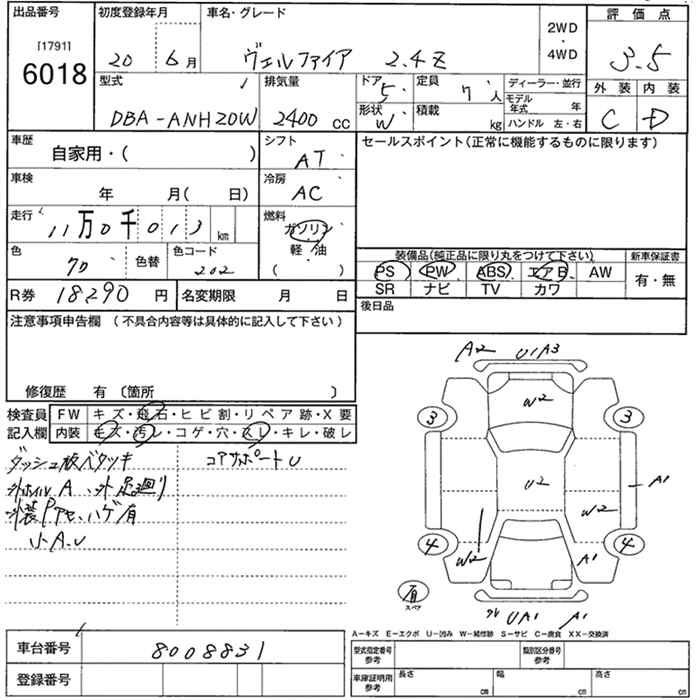 出品番号 初度登録年月 車名・グレード 評価点
[1791] 6018 20 年 6 月 ヴェルファイア 2.4Z 2WD・4WD 3.5
型式 排気量 ドア 5 定員 7人 ディーラー・並行 外装 内装
DBA-ANH20W 2400 cc 形状 W 積載 kg モデル年式 年 C D
ハンドル 左・右
車歴 自家用・( ) シフト AT セールスポイント(正常に機能するものに限ります)
車検 年 月( 日) 冷房 AC
走行 11万0千013 km 燃料 ガソリン
軽・油
( )
色 色替 色コード 202
装備品(純正品に限り丸をつけて下さい) 新車保証書
PS PW ABS エアB AW 有・無
SR ナビ TV カワ
R券 18290 円 名変期限 月 日 後日品
注意事項申告欄 (不具合内容等は具体的に記入して下さい)
修復歴 有 〔箇所 〕
検査員 FW キズ・飛石・ヒビ割・リペア跡・X要
記入欄 内装 キズ・汚レ・コゲ・穴・スレ・キレ・破レ
ダッシュ板ベタツキ コアサポートU
外ホイルA、外足廻り
外装P、アセ、ハゲ有
小A.U
A2 U1A3
W2
3 3
U2 A1
W2 W2
4 4
A1
有 スペア UA1 A1
A−キズ E−エクボ U−凹み W−補修跡 S−サビ C−腐食 XX−交換済
車台番号 8008831
登録番号
型式指定番号 参考 類別区分番号 参考
車庫証明用 参考 長さ cm 幅 cm 高さ cm